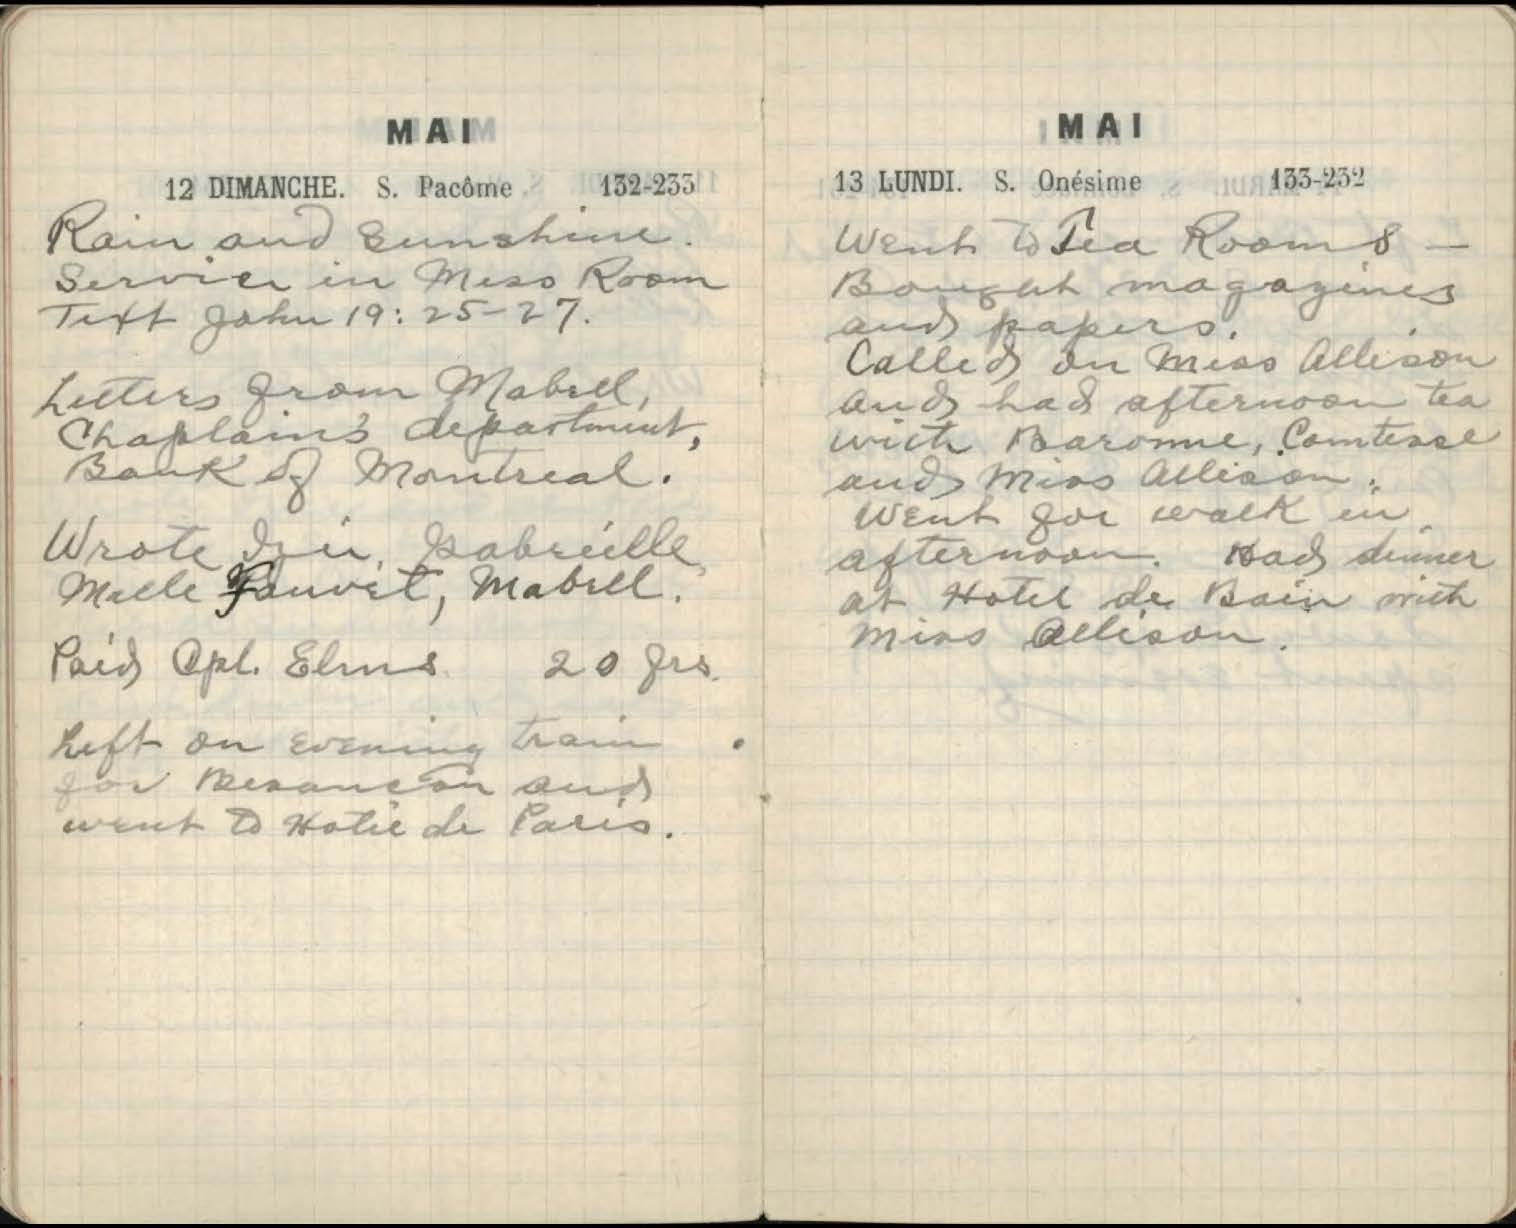 MAI
12 DIMANCHE. S. Pacôme 132-233
Rain and Sunshine.
Service in Mess Room
Text John 19:25-27.
Letters from Mabell,
Chaplain's department,
Bank of Montreal.
Wrote Gabrielle,
Melle Mabell.
Paid Cpl. Elms 20 frs.
Left on evening train
for Besancon and
went to Hotel de Paris.
MAI
13 LUNDI. S. Onésime 133-232
Went to Tea Rooms —
Bought magazines
and papers.
Called on Miss Allison
and had afternoon tea
with Baronne, Comtesse
and Miss Allison.
Went for walk in
afternoon. Had dinner
at Hotel de Bain with
Miss Allison.